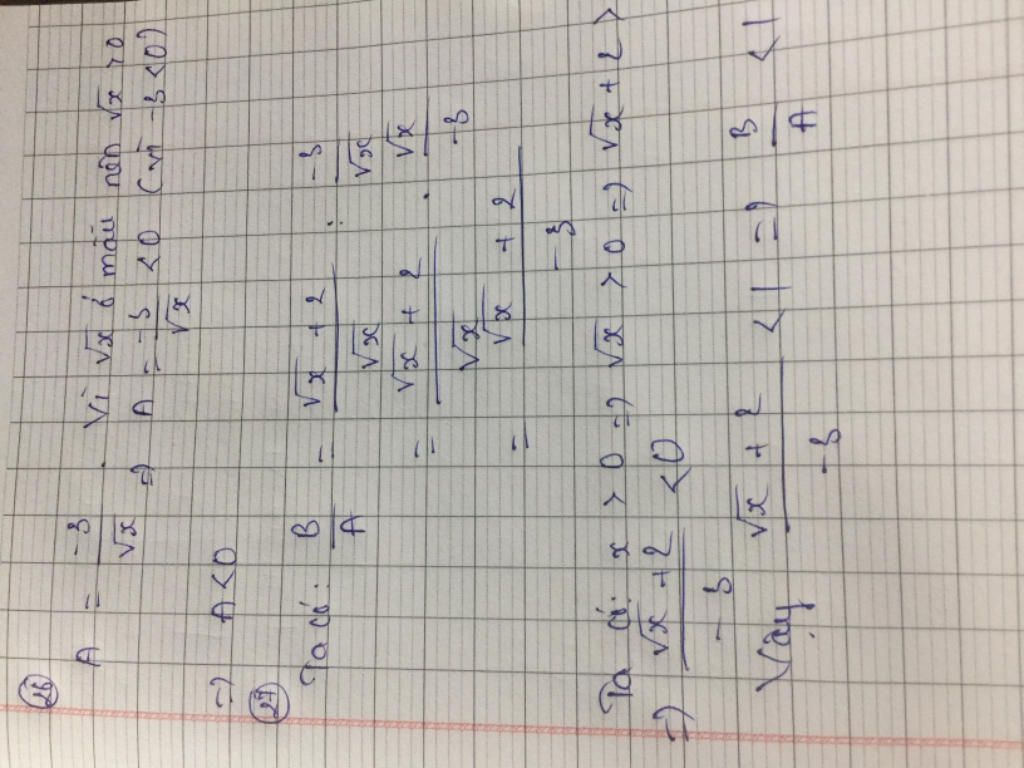 26
A = -3/√x . Vì √x ở mẫu nên √x > 0
=) A = -3/√x < 0 (vì -3 < 0)
=) A < 0
27
Ta có: B/A = (√x + 2)/√x : -3/√x
= (√x + 2)/√x . √x/-3
= (√x + 2)/-3
Ta có: x > 0 =) √x > 0 =) √x + 2 >
=) (√x + 2)/-3 < 0
Vậy (√x + 2)/-3 < 1 =) B/A < 1